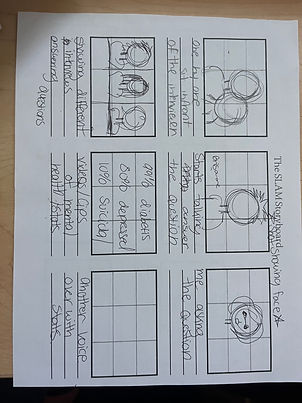 The SLAM Storyboard showing face
one by one
sit infront
of the interveen
starts talking
answer
the question
me asking
the question
showing different
interviews
answering
questions
99% diabetis
80% depressed
10% suicidal
videos clips
of mental
health/stats
another voice
over with
stats